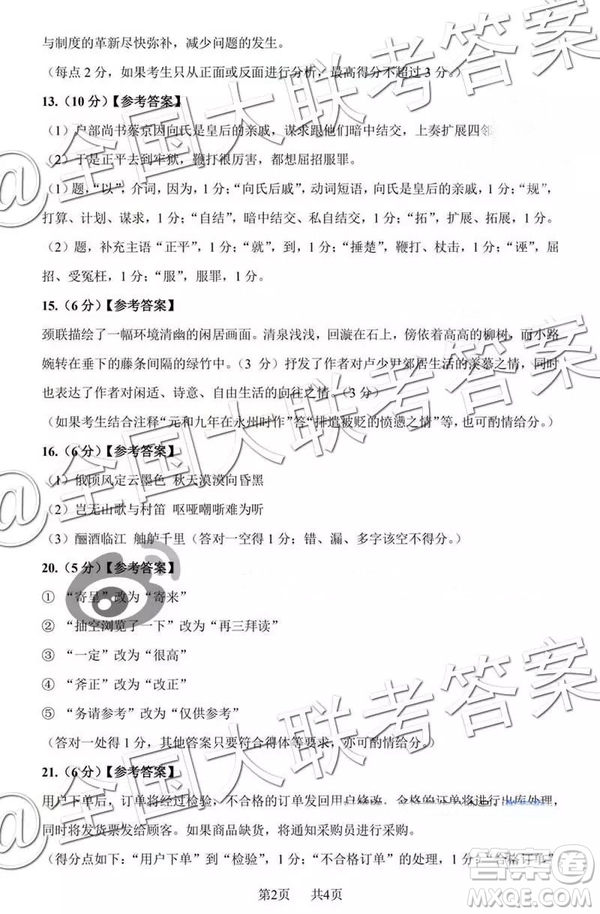 与制度的革新尽快弥补，减少问题的发生。
（每点 2 分，如果考生只从正面或反面进行分析，最高得分不超过 3 分。）
13.（10 分）【参考答案】
（1）户部尚书蔡京因向氏是皇后的亲戚，谋求跟他们暗中结交，上奏扩展四邻
（2）于是正平去到牢狱，鞭打很厉害，都想屈招服罪。
（1）题，“以”，介词，因为，1 分；“向氏后戚”，动词短语，向氏是皇后的亲戚，1 分；“规”，
打算、计划、谋求，1 分；“自结”，暗中结交、私自结交，1 分；“拓”，扩展、拓展，1 分。
（2）题，补充主语“正平”，1 分；“就”，到，1 分；“捶楚”，鞭打、杖击，1 分；“诬”，屈
招、受冤枉，1 分；“服”，服罪，1 分。
15.（6 分）【参考答案】
颈联描绘了一幅环境清幽的闲居画面。清泉浅浅，回漩在石上，傍依着高高的柳树，而小路
婉转在垂下的藤条间隔的绿竹中。（3 分）抒发了作者对卢少尹郊居生活的羡慕之情，同时
也表达了作者对闲适、诗意、自由生活的向往之情。（3 分）
（如果考生结合注释“元和九年在永州时作”答“排遣被贬的愤懑之情”等，也可酌情给分。）
16.（6 分）【参考答案】
（1）俄顷风定云墨色 秋天漠漠向昏黑
（2）岂无山歌与村笛 呕哑嘲哳难为听
（3）酾酒临江 舳舻千里（答对一空得 1 分；错、漏、多字该空不得分。）
20.（5 分）【参考答案】
① “寄呈”改为“寄来”
② “抽空浏览了一下”改为“再三拜读”
③ “一定”改为“很高”
④ “斧正”改为“改正”
⑤ “务请参考”改为“仅供参考”
（答对一处得 1 分，其他答案只要符合得体等要求，亦可酌情给分。）
21.（6 分）【参考答案】
用户下单后，订单将经过检验，不合格的订单发回用户修改，合格的订单将进行出库处理，
同时将发货票发给顾客。如果商品缺货，将通知采购员进行采购。
（得分点如下：“用户下单”到“检验”，1 分；“不合格订单”的处理，1 分；“合格订单”
第2页 共4页
@全国大联考答案
答案圈
MXQE.COM